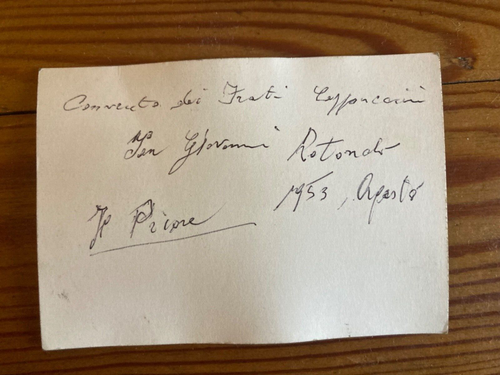 Convento dei Frati Cappuccini
San Giovanni Rotondo
1953, Agosto
Il Priore